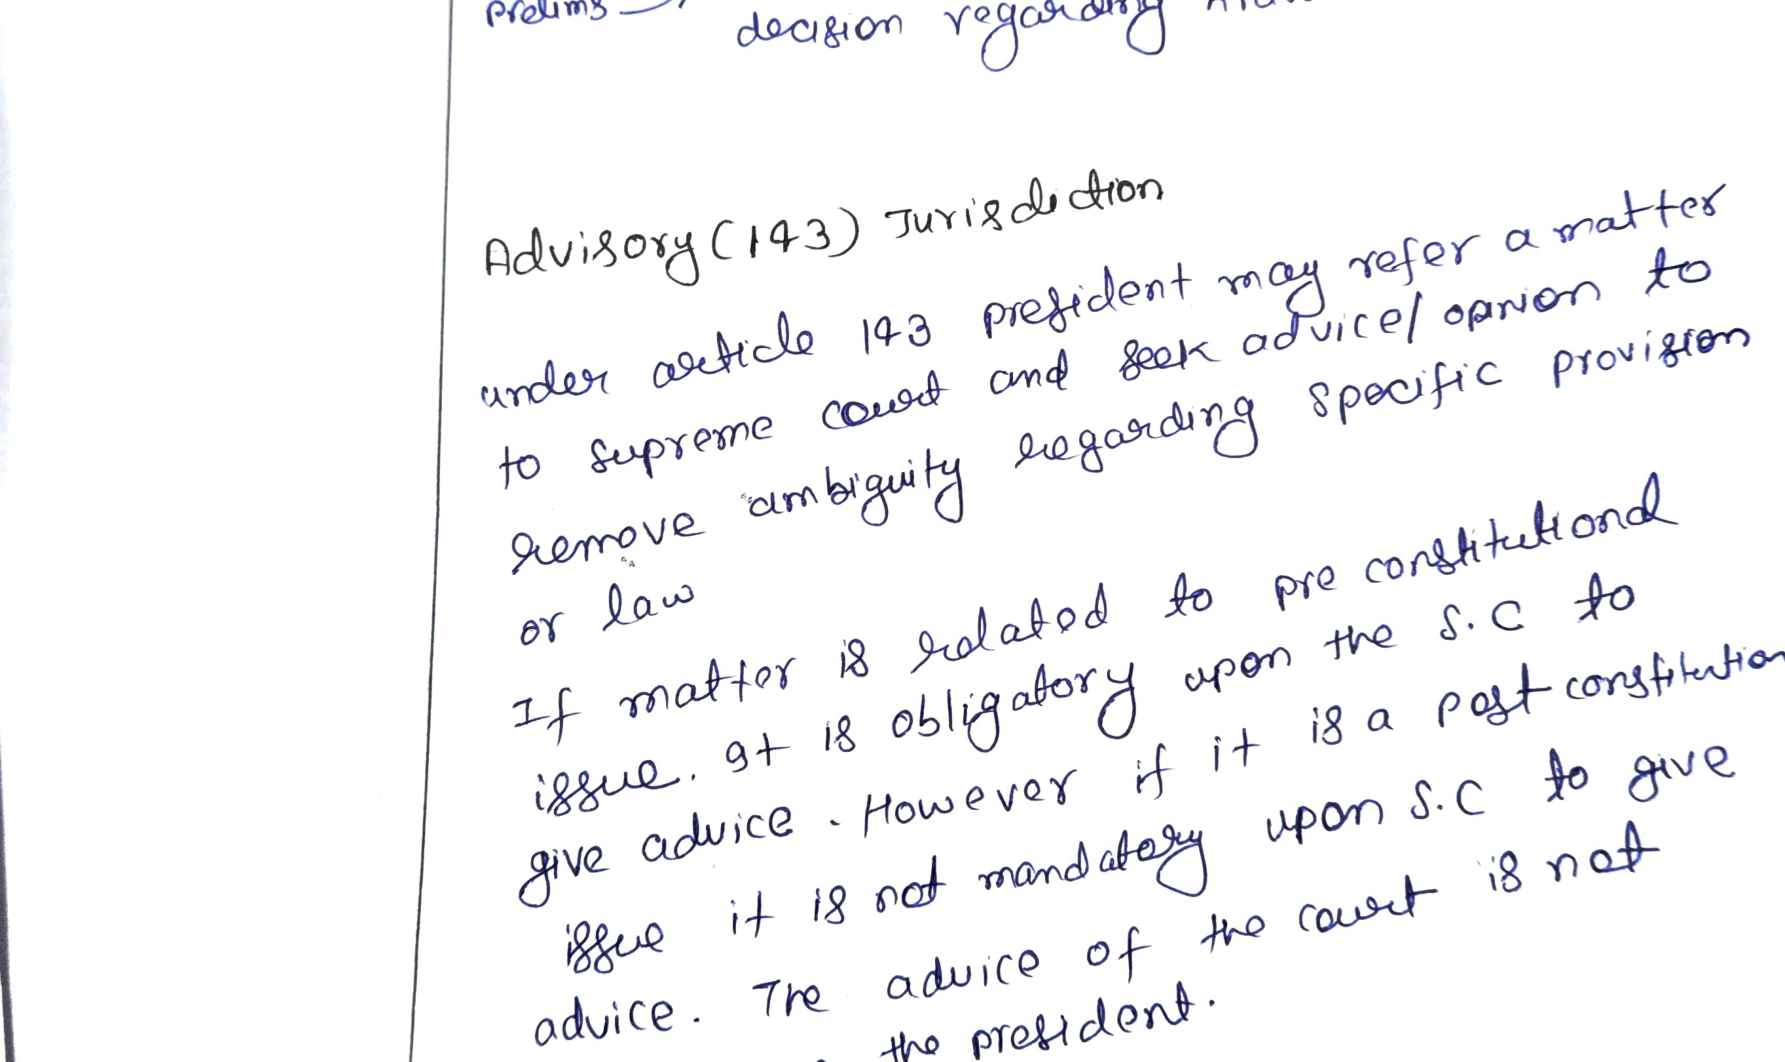 Prelims
decision regarding
Advisory (143) Jurisdiction
under article 143 president may refer a matter
to supreme court and seek advice/ opinion to
remove ambiguity regarding specific provision
or law
If matter is related to pre constitutional
issue. It is obligatory upon the S.C to
give advice. However if it is a post constitution
issue it is not mandatory upon S.C to give
advice. The advice of the court is not
the president.